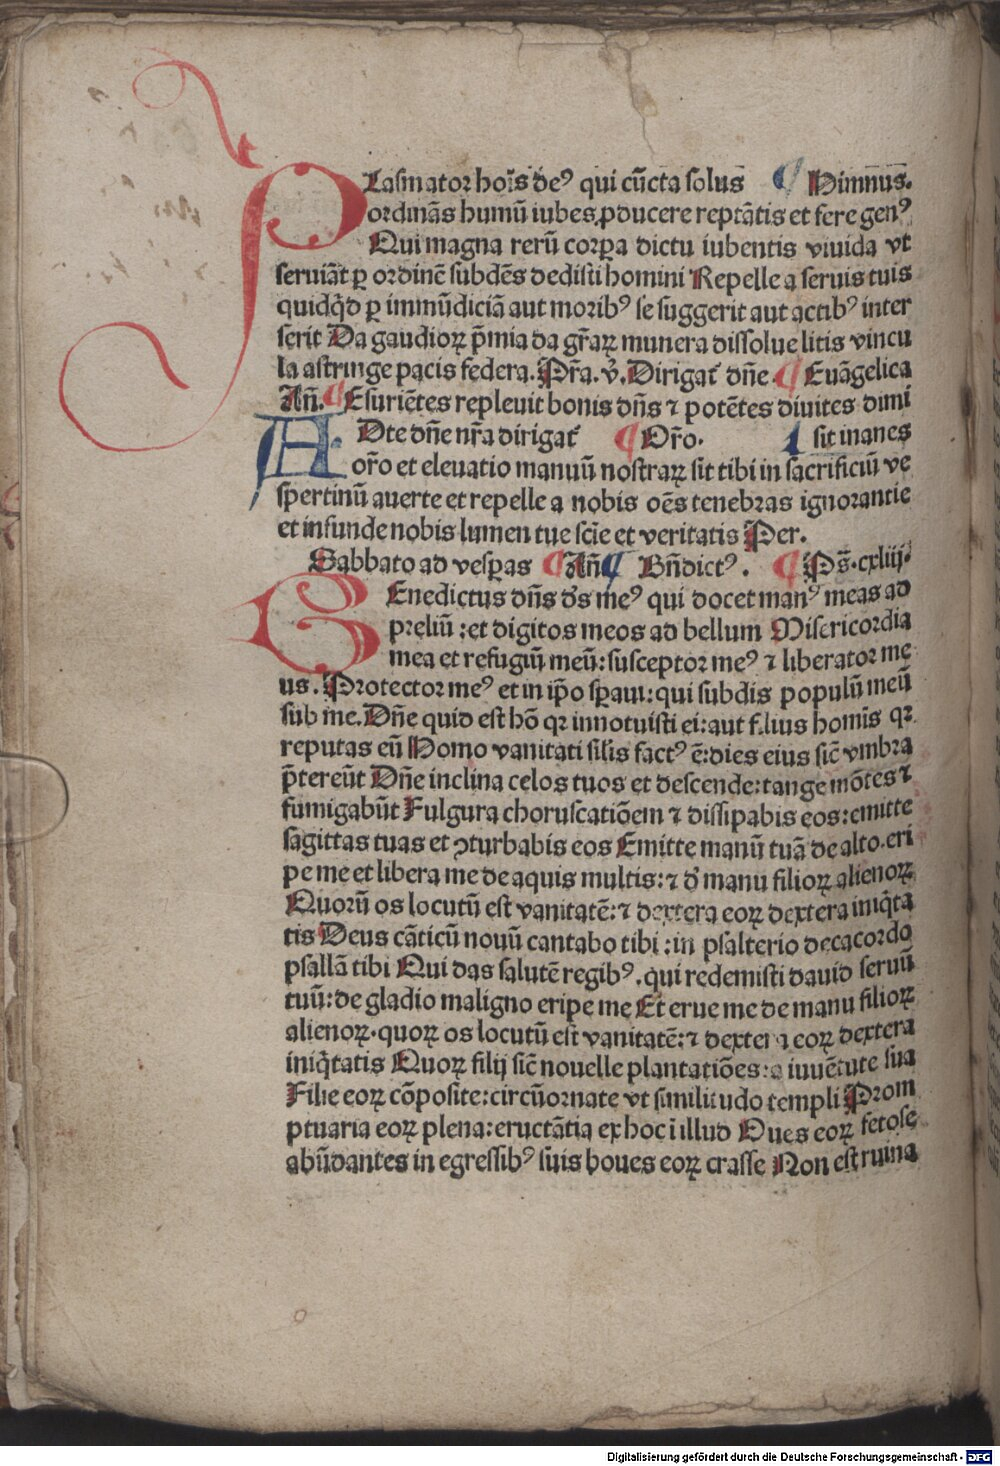 PLasmator hoı̄s de⁹ qui cūcta solus ¶ Himnus.
ordinās humū iubes ꝓducere reptātis et fere gen⁹
Qui magna rerū corꝑa dictu iubentis viuida vt
seruiāt ꝑ ordinē subdēs dedisti homini Repelle a seruis tuis
quidq̄d ꝑ immūdiciā aut morib⁹ se suggerit aut actib⁹ inter
serit Da gaudioꝝ p̄mia da gr̄aꝝ munera dissolue litis vincu
la astringe pacis federa. Pr̄a. v̓. Dirigat̄ dn̄e. ¶ Euāgelica
Añ. ¶ Esuriētes repleuit bonis dn̄s ⁊ potētes diuites dimi
ADte dn̄e nr̄a dirigat̄ ¶ Or̄o. sit inanes
or̄o et eleuatio manuū nostraꝝ sit tibi in sacrificiū ve
spertinū auerte et repelle a nobis oēs tenebras ignorantie
et infunde nobis lumen tue scīe et veritatis Per.
Sabbato ad vesꝑas ¶ Añ ¶ Bn̄dict⁹. ¶ Ps̄. cxliij.
BEnedictus dn̄s ds̄ me⁹ qui docet man⁹ meas ad
preliū : et digitos meos ad bellum Misericordia
mea et refugiū meū: susceptor me⁹ ⁊ liberator me
us. Protector me⁹ et in ip̄o sꝑaui: qui subdis populū meū
sub me. Dn̄e quid est hō qꝛ innotuisti ei: aut filius homīs qꝛ
reputas eū Homo vanitati silis fact⁹ ē: dies eius sic̄ vmbra
p̄tereūt Dn̄e inclina celos tuos et descende: tange mōtes ⁊
fumigabūt Fulgura choruscatiōem ⁊ dissipabis eos: emitte
sagittas tuas et ꝯturbabis eos Emitte manū tuā de alto. eri
pe me et libera me de aquis multis: ⁊ d̓ manu filioꝝ alienoꝝ
Quorū os locutū est vanitatē: ⁊ dextera eoꝝ dextera iniq̄ta
tis Deus cāticū nouū cantabo tibi : in psalterio decacordo
psallā tibi Qui das salutē regib⁹. qui redemisti dauid seruū
tuū: de gladio maligno eripe me Et erue me de manu filioꝝ
alienoꝝ. quoꝝ os locutū est vanitatē: ⁊ dextera eoꝝ dextera
iniq̄tatis Quoꝝ filij sic̄ nouelle plantatiōes: a iuuētute sua
Filie eoꝝ cōposite: circūornate vt similitudo templi Prom
ptuaria eoꝝ plena: eructātia ex hoc ī illud Oues eoꝝ fetose
abūdantes in egressib⁹ suis boues eoꝝ crasse Non est ruina
Digitalisierung gefördert durch die Deutsche Forschungsgemeinschaft - DFG